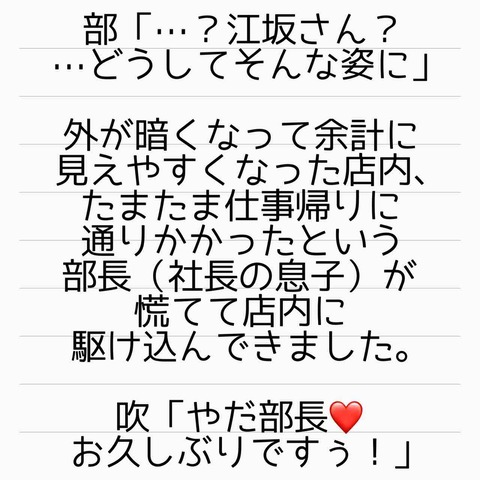 部「…？江坂さん？
…どうしてそんな姿に」
外が暗くなって余計に
見えやすくなった店内、
たまたま仕事帰りに
通りかかったという
部長（社長の息子）が
慌てて店内に
駆け込んできました。
吹「やだ部長❤️
お久しぶりですぅ！」